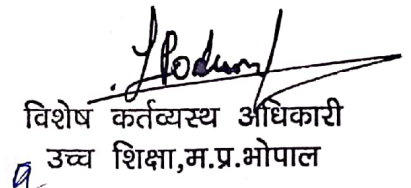 विशेष कर्तव्यस्थ अधिकारी
उच्च शिक्षा,म.प्र.भोपाल